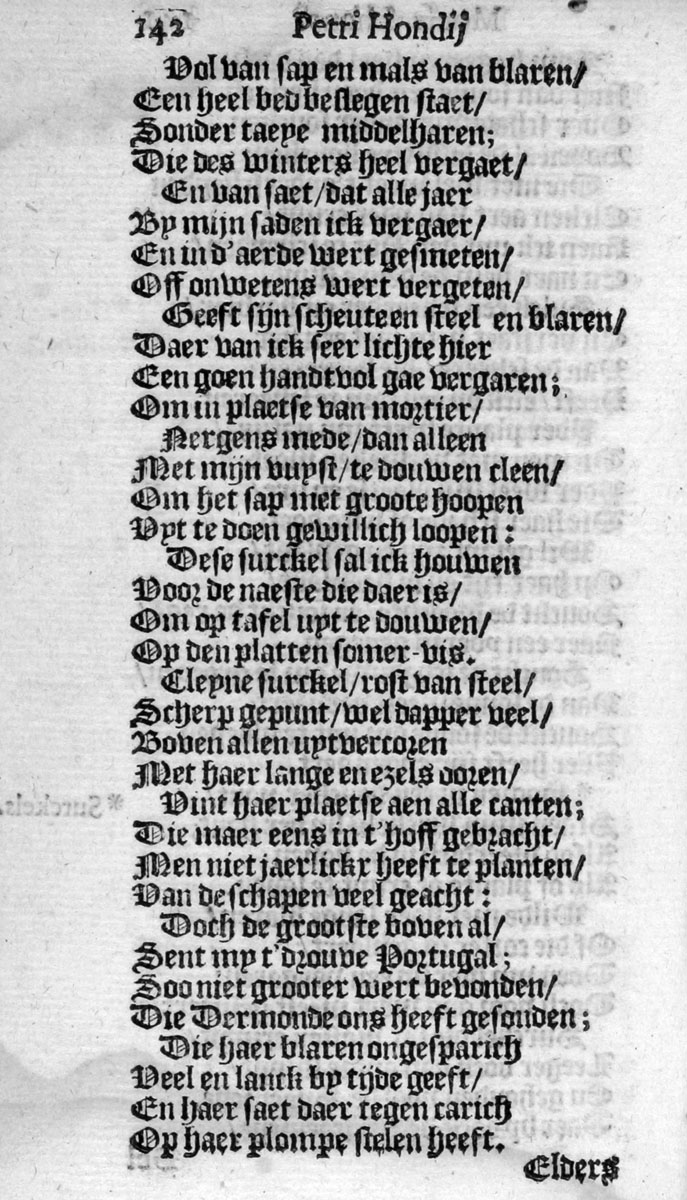 142 Petri Hondij
Vol van sap en mals van blaren/
Een heel bed beslegen staet/
Sonder taeye middelharen;
Die des winters heel vergaet/
En van saet/dat alle jaer
By mijn saden ick vergaer/
En in d'aerde wert gesmeten/
Off onwetens wert vergeten/
Geeft sijn scheute en steel en blaren/
Daer van ick seer lichte hier
Een goen handtvol gae vergaren;
Om in plaetse van mortier/
Nergens mede/dan alleen
Met mijn vuyst/te douwen cleen/
Om het sap met groote hoopen
Uyt te doen gewillich loopen:
Dese surckel sal ick houwen
Voor de naeste die daer is/
Om op tafel uyt te douwen/
Op den platten somer-vis.
Cleyne surckel/rost van steel/
Scherp gepunt/wel dapper veel/
Boven allen uytvercoren
Met haer lange en ezels ooren/
Vint haer plaetse aen alle canten;
Die maer eens in t'hoff gebracht/
Men niet jaerlickx heeft te planten/
Van de schapen veel geacht:
Doch de grootste boven al/
Sent my t'drouve Portugal;
Soo niet grooter wert bevonden/
Die Dermonde ons heeft gesonden;
Die haer blaren ongesparich
Veel en lanck by tijde geeft/
En haer saet daer tegen carich
Op haer plompe stelen heeft.
Elders